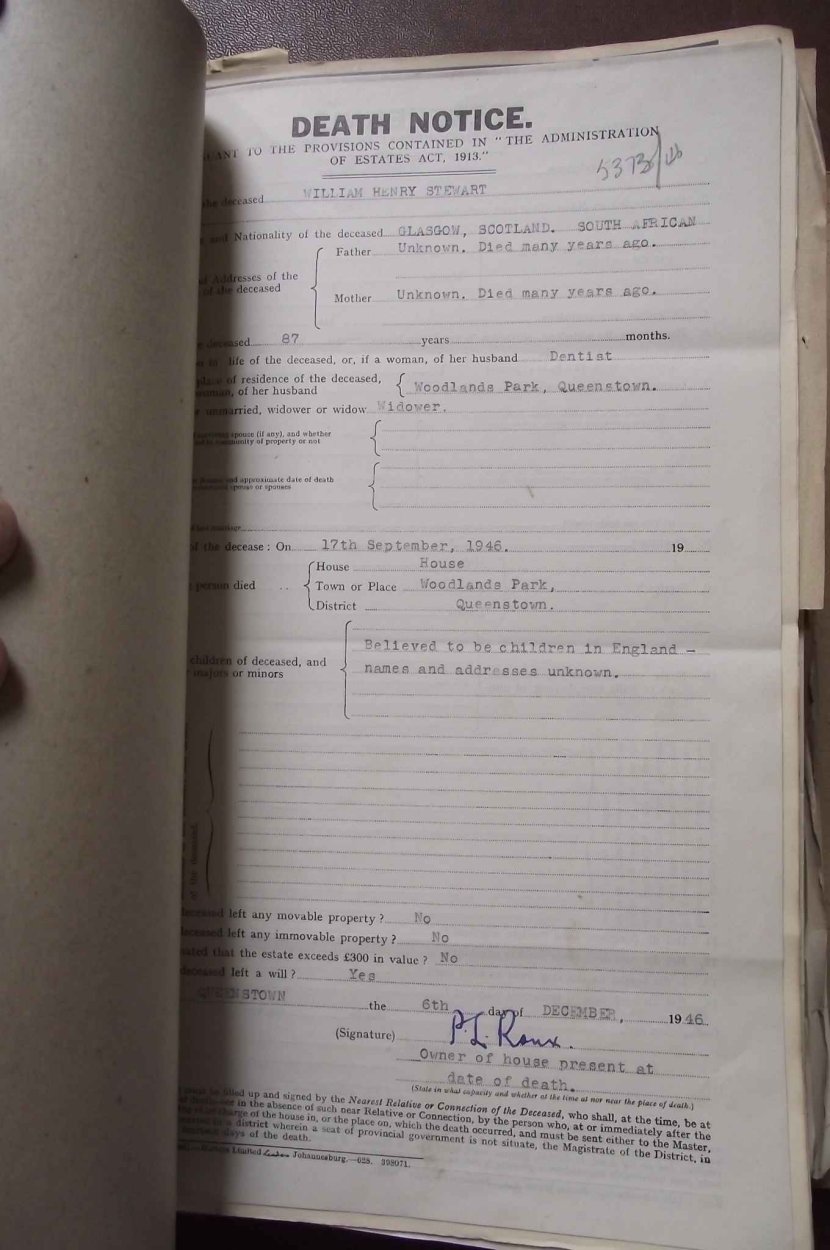 DEATH NOTICE.
TO THE PROVISIONS CONTAINED IN "THE ADMINISTRATION
OF ESTATES ACT, 1913."
5373/46
the deceased WILLIAM HENRY STEWART
and Nationality of the deceased GLASGOW, SCOTLAND. SOUTH AFRICAN
Father Unknown. Died many years ago.
Addresses of the
of the deceased
Mother Unknown. Died many years ago.
deceased 87 years months.
in life of the deceased, or, if a woman, of her husband Dentist
place of residence of the deceased,
woman, of her husband Woodlands Park, Queenstown.
unmarried, widower or widow Widower.
spouse (if any), and whether
community of property or not
and approximate date of death
spouse or spouses
of the decease: On 17th September, 1946. 19
House House
person died .. Town or Place Woodlands Park,
District Queenstown.
Believed to be children in England -
children of deceased, and
names and addresses unknown.
majors or minors
of the deceased.
deceased left any movable property? No
deceased left any immovable property? No
that the estate exceeds £300 in value? No
deceased left a will? Yes
QUEENSTOWN the 6th day of DECEMBER, 1946
(Signature) P.L. Roux.
Owner of house present at
date of death.
(State in what capacity and whether at the time at nor near the place of death.)
must be filled up and signed by the Nearest Relative or Connection of the Deceased, who shall, at the time, be at
in the absence of such near Relative or Connection, by the person who, at or immediately after the
charge of the house in, or the place on, which the death occurred, and must be sent either to the Master,
in a district wherein a seat of provincial government is not situate, the Magistrate of the District, in
days of the death.
Limited Johannesburg.—625. 398071.